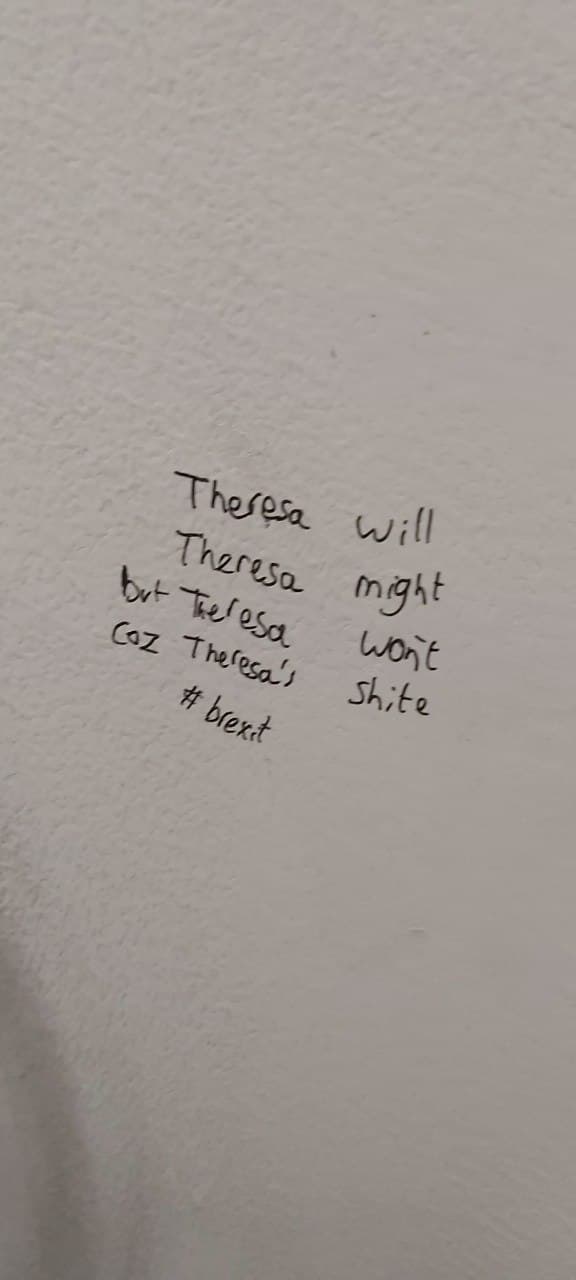 Theresa will
Theresa might
but Theresa won't
coz Theresa's shite
#brexit